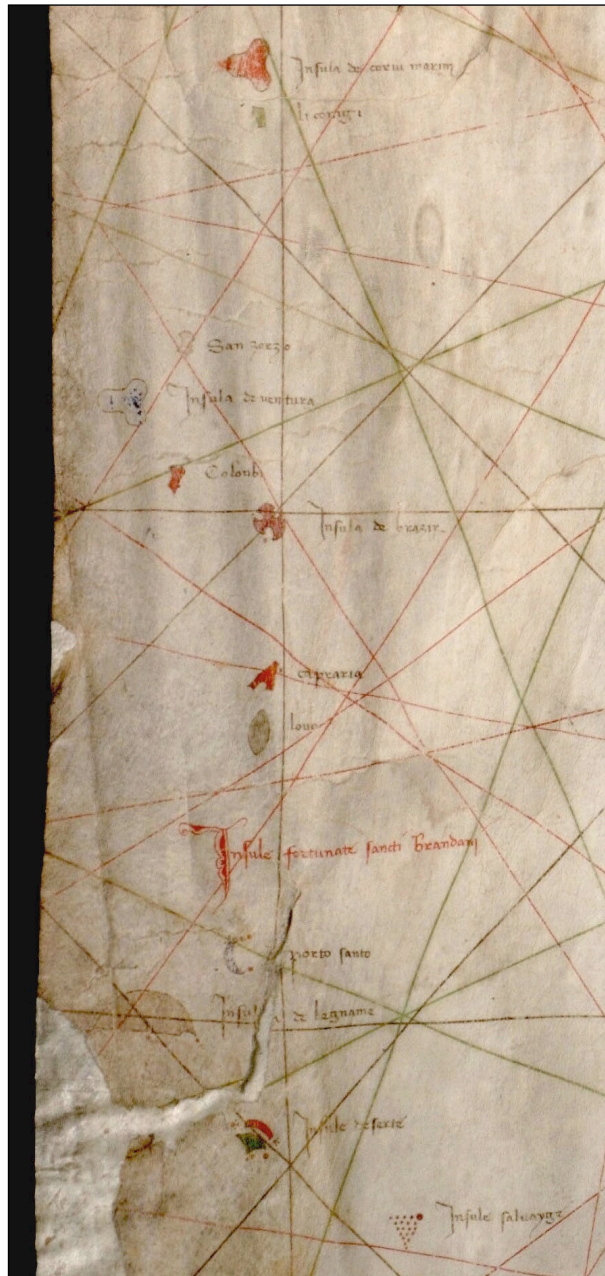 Insula de corui marini
li conigi
San zorzo
Insula de uentura
Colonbi
Insula de brazir
capraria
louo
Insule fortunate sancti brandani
porto santo
Insula de legname
Insule deserte
Insule saluayge